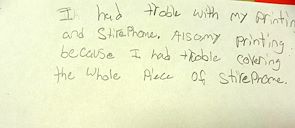 I had troble with my printin
and StirePhone. Alsomy printing
because I had troble covering
the whole Piece of StirePhone.